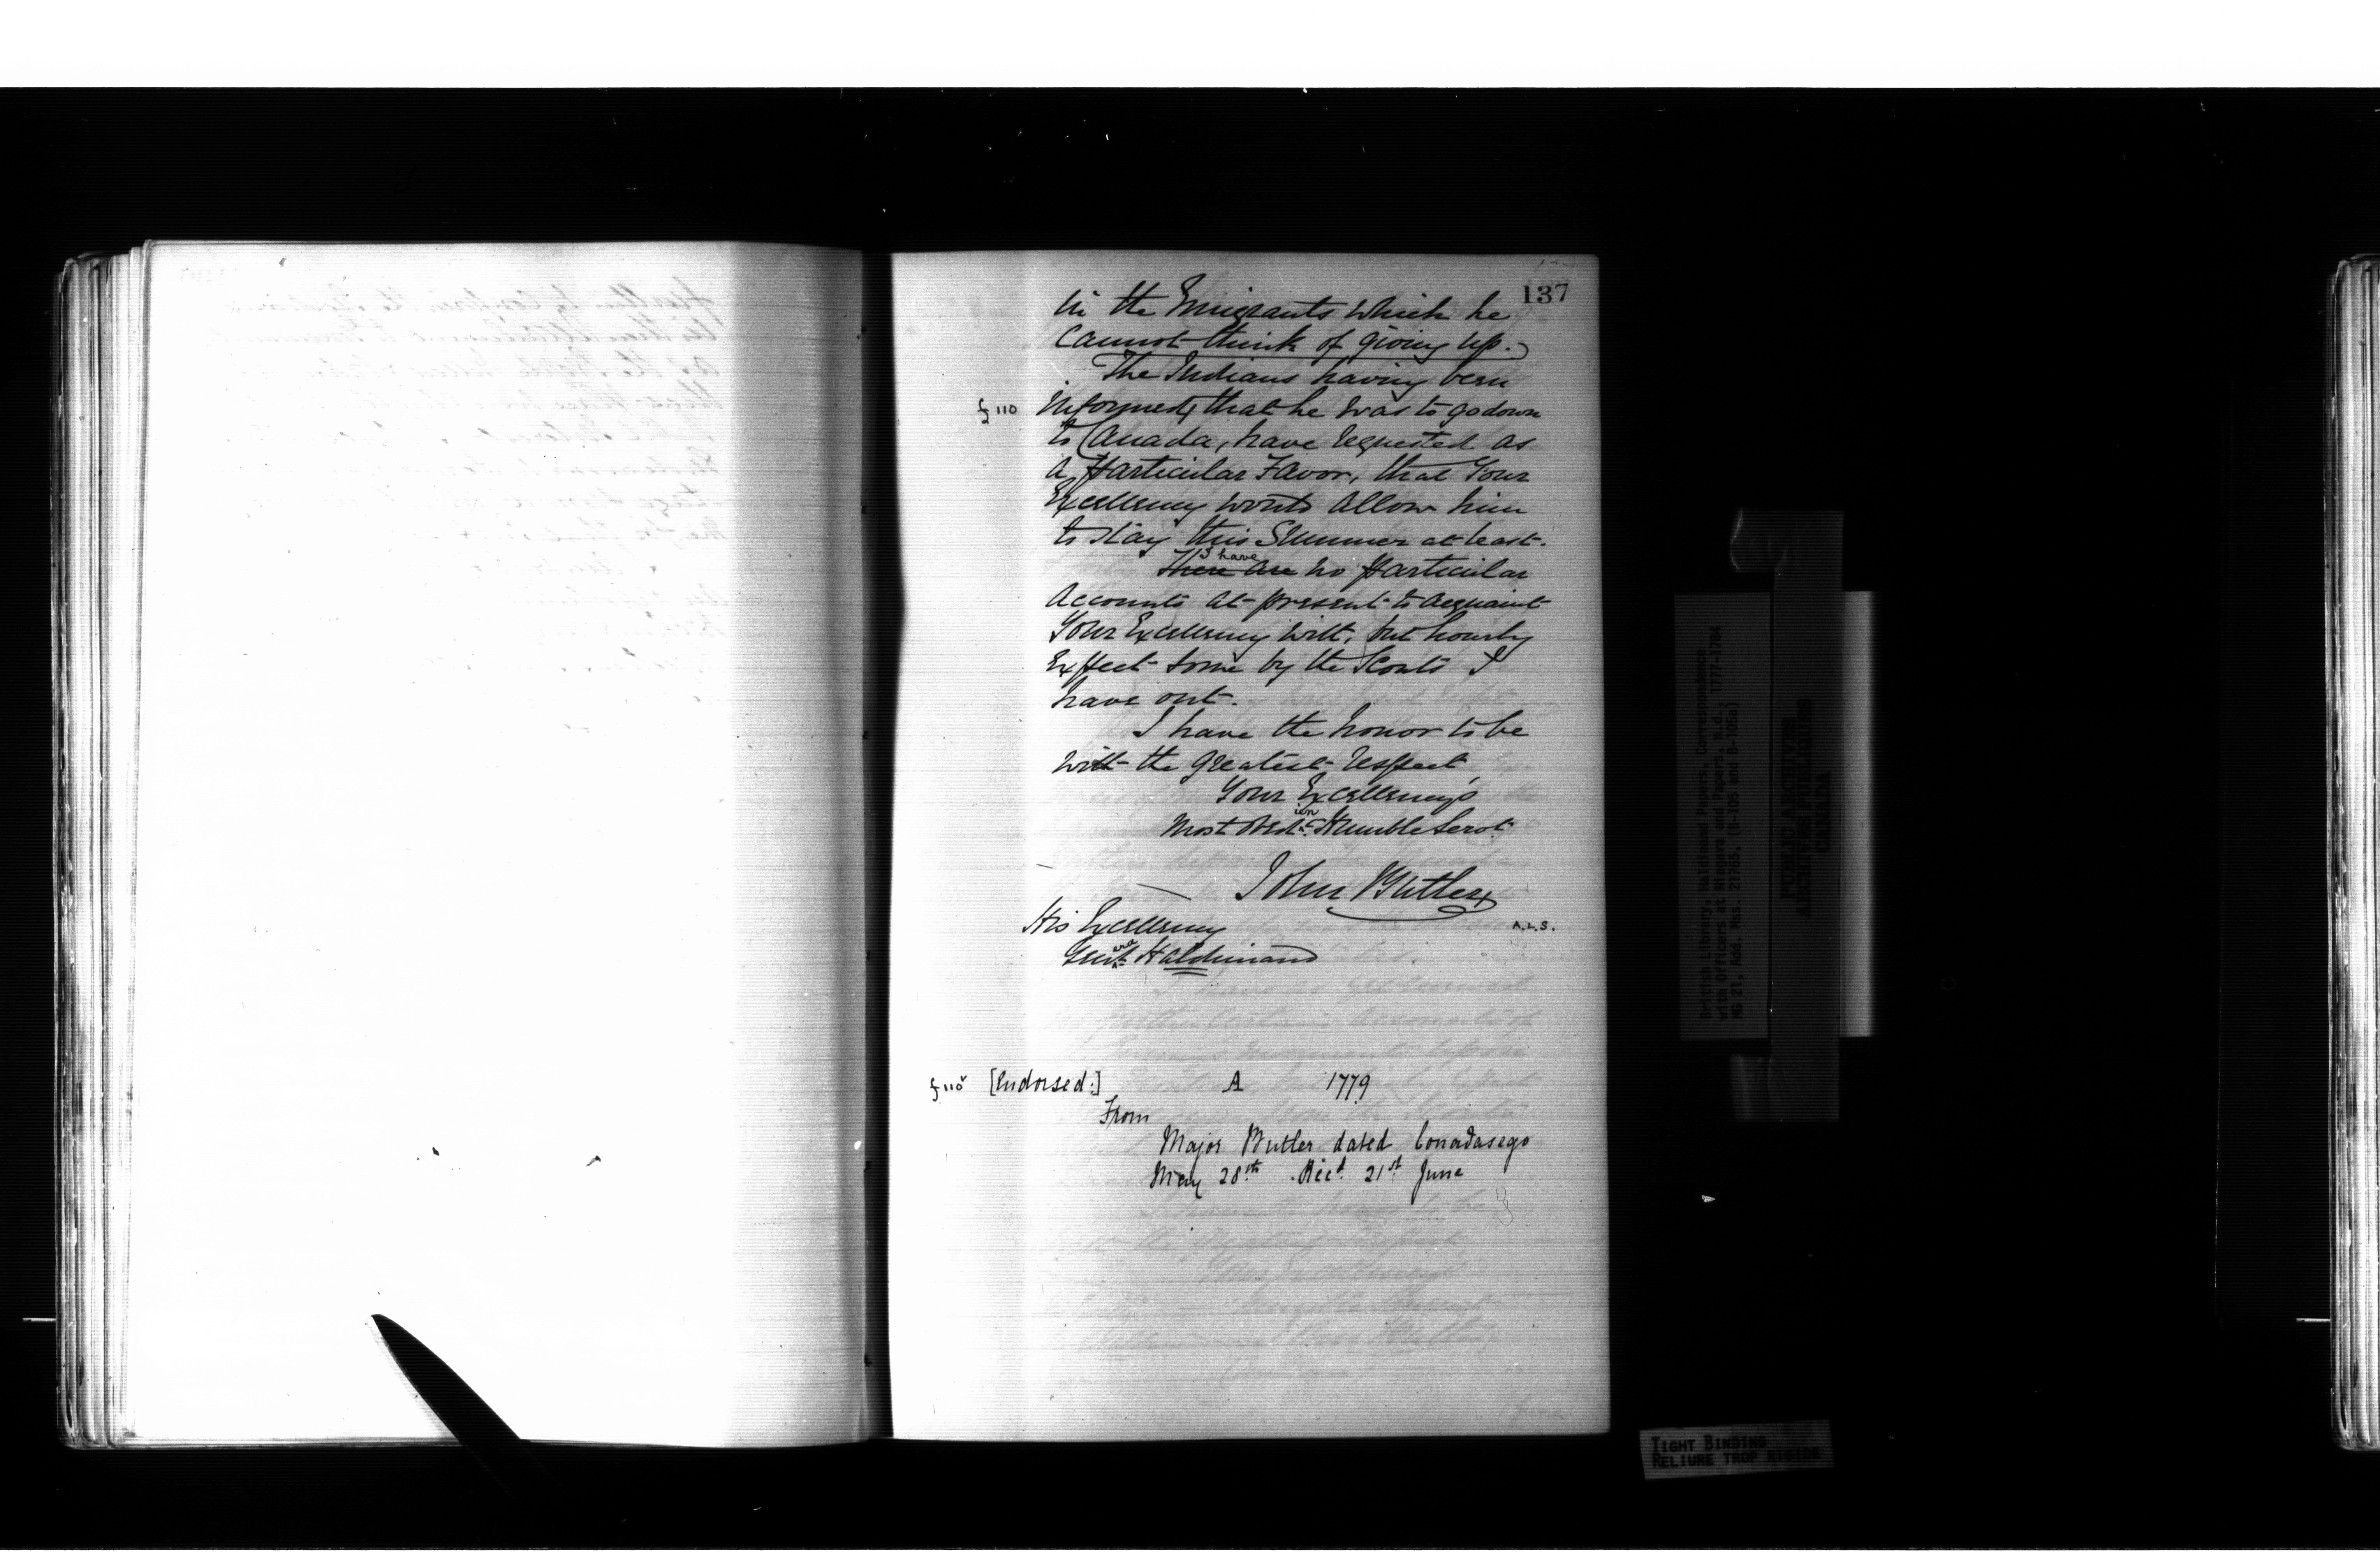 137
in the Emigrants which he
cannot think of giving up.
The Indians having been
f 110 informed, that he was to go down
to Canada, have requested as
a Particular Favor, that Your
Excellency would allow him
to stay this Summer at least.
I have
There are no particular
Accounts at present to acquaint
Your Excellency with, but hourly
Expect some by the Scouts I
have out.
I have the honor to be
with the greatest respect
Your Excellency's
Most Obedt Humble Servt
John Butler
His Excellency A.L.S.
Haldimand
f 110v [Endorsed:] A 1779
From
Major Butler dated Conadasego
May 28th Recd 21st June
British Library, Haldimand Papers, Correspondence
with Officers at Niagara and Papers, n.d., 1777-1784
MG 21, Add. Mss. 21765, (B-105 and B-105a)
PUBLIC ARCHIVES
ARCHIVES PUBLIQUES
CANADA
TIGHT BINDING
RELIURE TROP RIGIDE